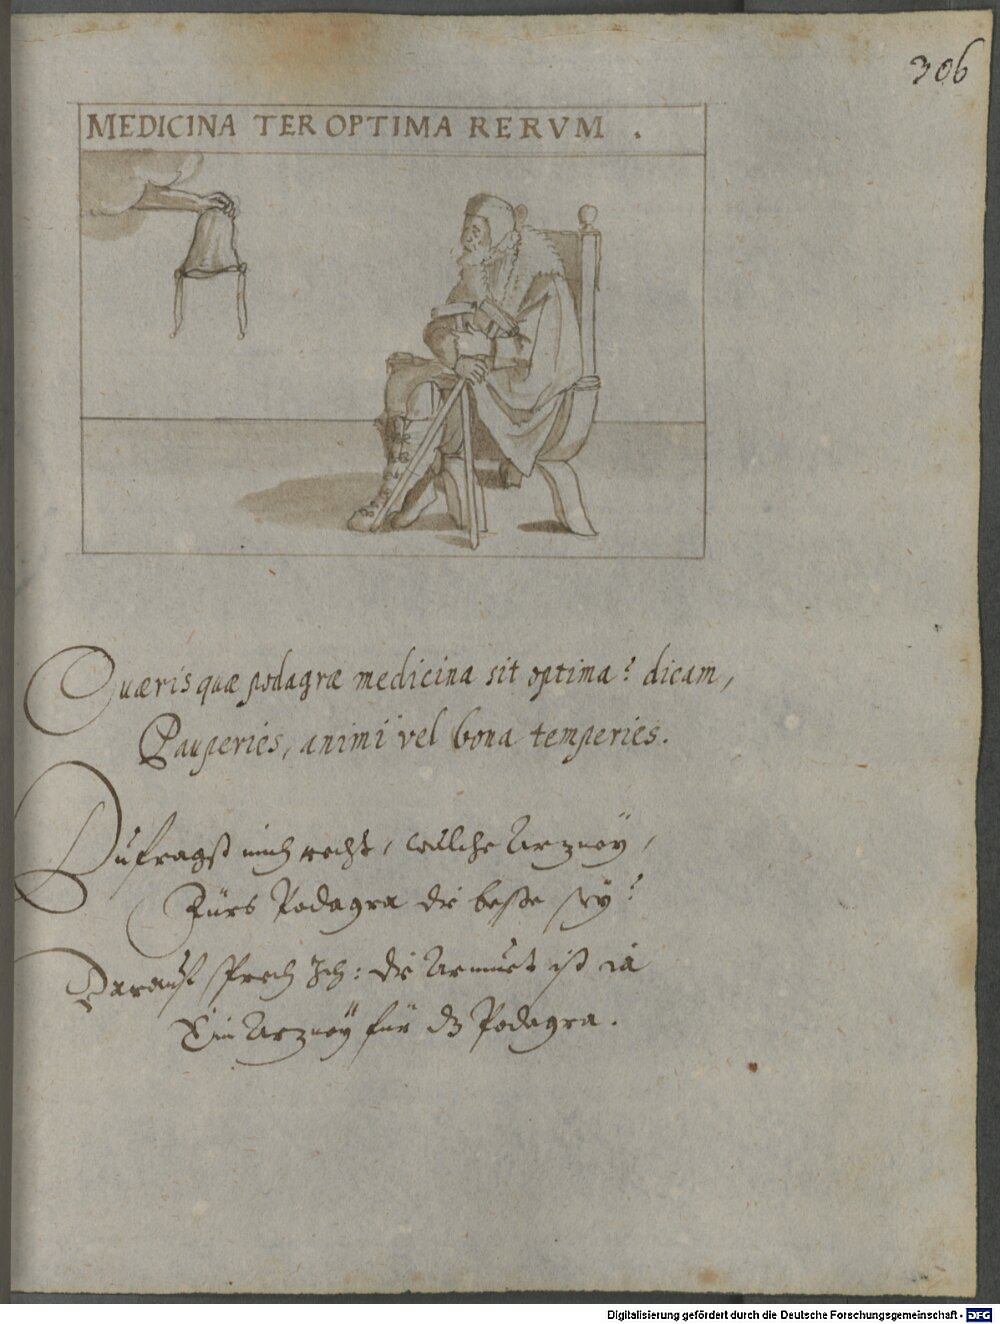 306
MEDICINA TER OPTIMA RERVM .
Quæris quæ podagræ medicina sit optima? dicam,
Pauperies, animi vel bona temperies.
Du fragst mich recht, wellche Arzney,
Fürs Podagra die beste sey?
Darauf sprech Ich: die Armuet ist ia
Ein Arzney für dz Podagra.
Digitalisierung gefördert durch die Deutsche Forschungsgemeinschaft - DFG